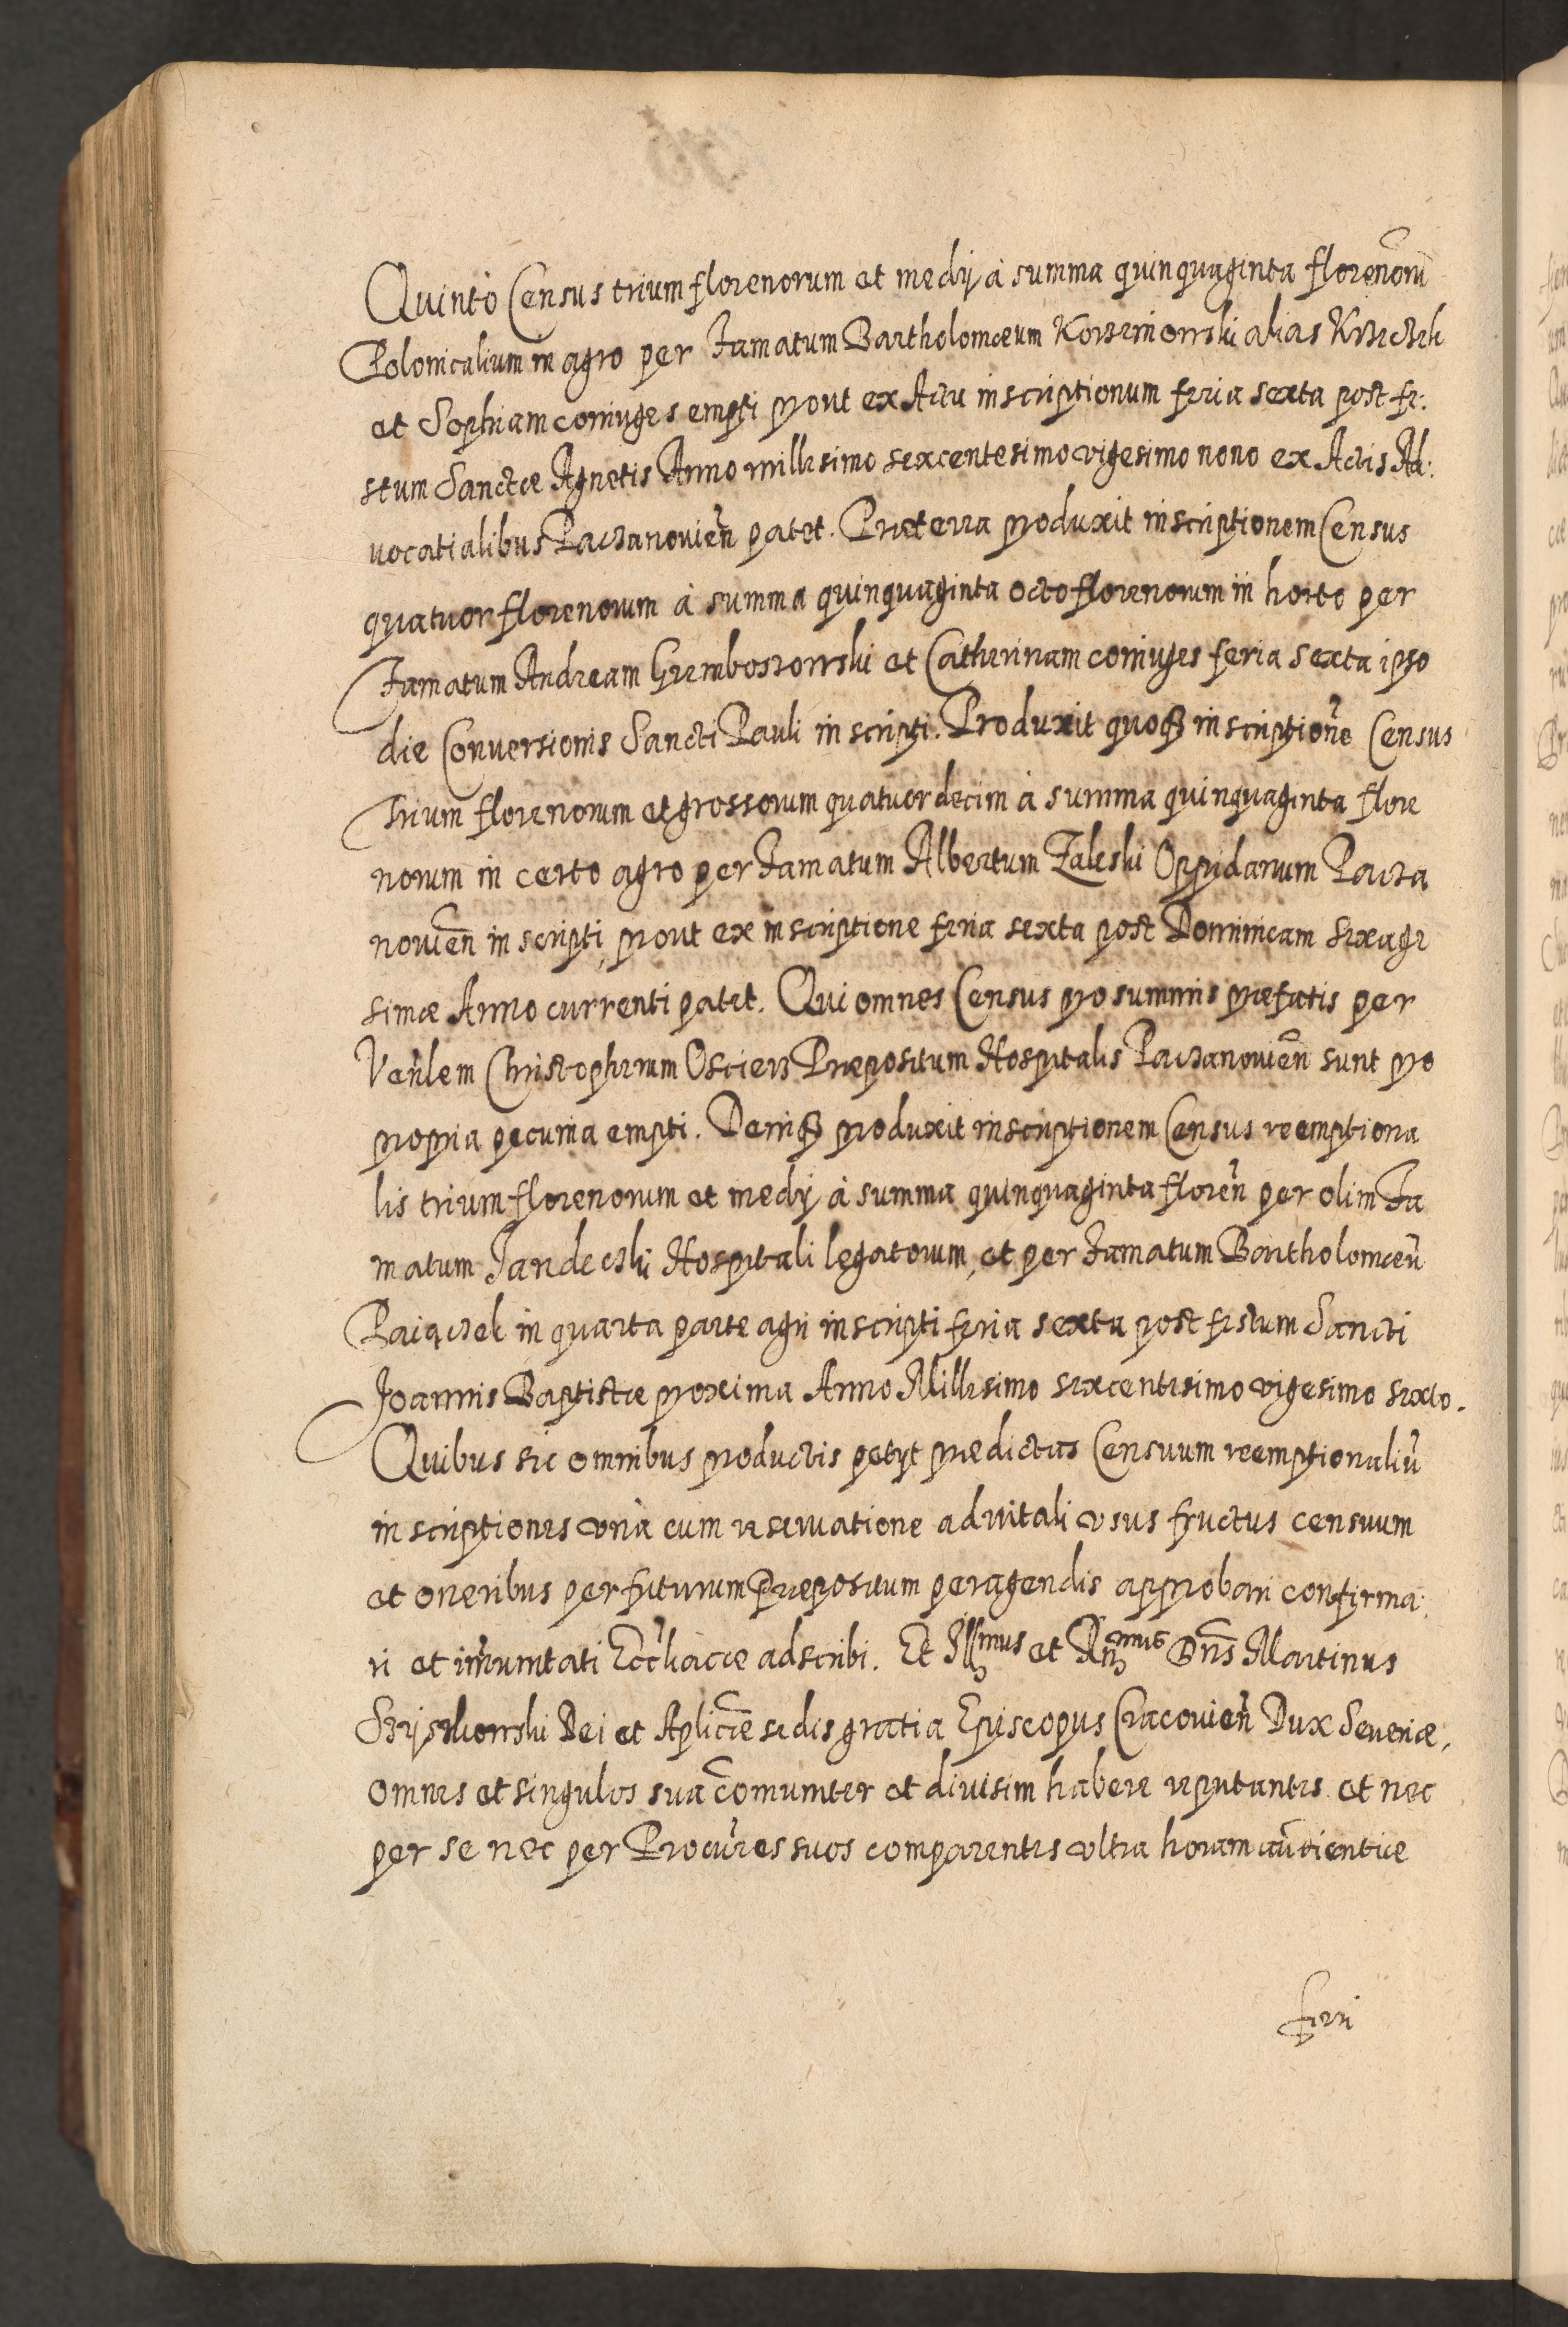 Quintò Census trium florenorum et medij à summa quinquaginta florenorũ
Polonicalium in agro per Famatum Bartholomæum Korzeniowski alias Krzeczek
et Sophiam coniuges empti prout ex Actu inscriptionum feria sexta post fe:
stum Sanctæ Agnetis Anno millesimo sexcentesimo vigesimo nono ex Actis Ad:
vocatialibus Paczanovieñ patet. Præterea produxit inscriptionem Census
quatuor florenorum à summa quinquaginta octo florenorum in horto per
Famatum Andream Gremboszowski et Catherinam coniuges feria sexta ipso
die Conversionis Sancti Pauli inscripti. Produxit quoqȝ inscriptionẽ Census
Trium florenorum et grossorum quatuordecim à summa quinquaginta flore
norum in certo agro per Famatum Albertum Zaleski Oppidanum Pacza
novieñ inscripti, prout ex inscriptione feria sexta post Dominicam Sexage
simæ Anno currenti patet. Qui omnes Census pro summis præfatis per
Veñlem Christopherum Praepositum Hospitalis Paczanovieñ sunt pro
propria pecunia empti. Deniqȝ produxit inscriptionem Census reemptiona
lis trium florenorum et medij à summa quinquaginta floreñ per olim Fa
matum Jandecki Hospitali legatorum, et per Famatum Bartholomæũ
in quarta parte agri inscripti feria sexta post festum Sancti
Joannis Baptistæ proxima Anno Millesimo sexcentesimo vigesimo sexto.
Quibus sic omnibus productis petijt prædictas Censuum reemptionaliũ
inscriptiones unà cum reservatione advitali usus fructus censuum
et oneribus per futurum Præpositum peragendis approbari confirma:
ri et im̃unitati Ecc̃liasticæ adscribi. Et Illmus et Rñmus Dñs Martinus
Szyszkowski Dei et Aplicæ sedis gratia Episcopus Cracovieñ Dux Severiæ,
omnes et singulos sua com̃uniter et divisim habere reputantes et nec
per se nec per Procur̃es suos comparentes ultra horam aud̃ientiæ
feri